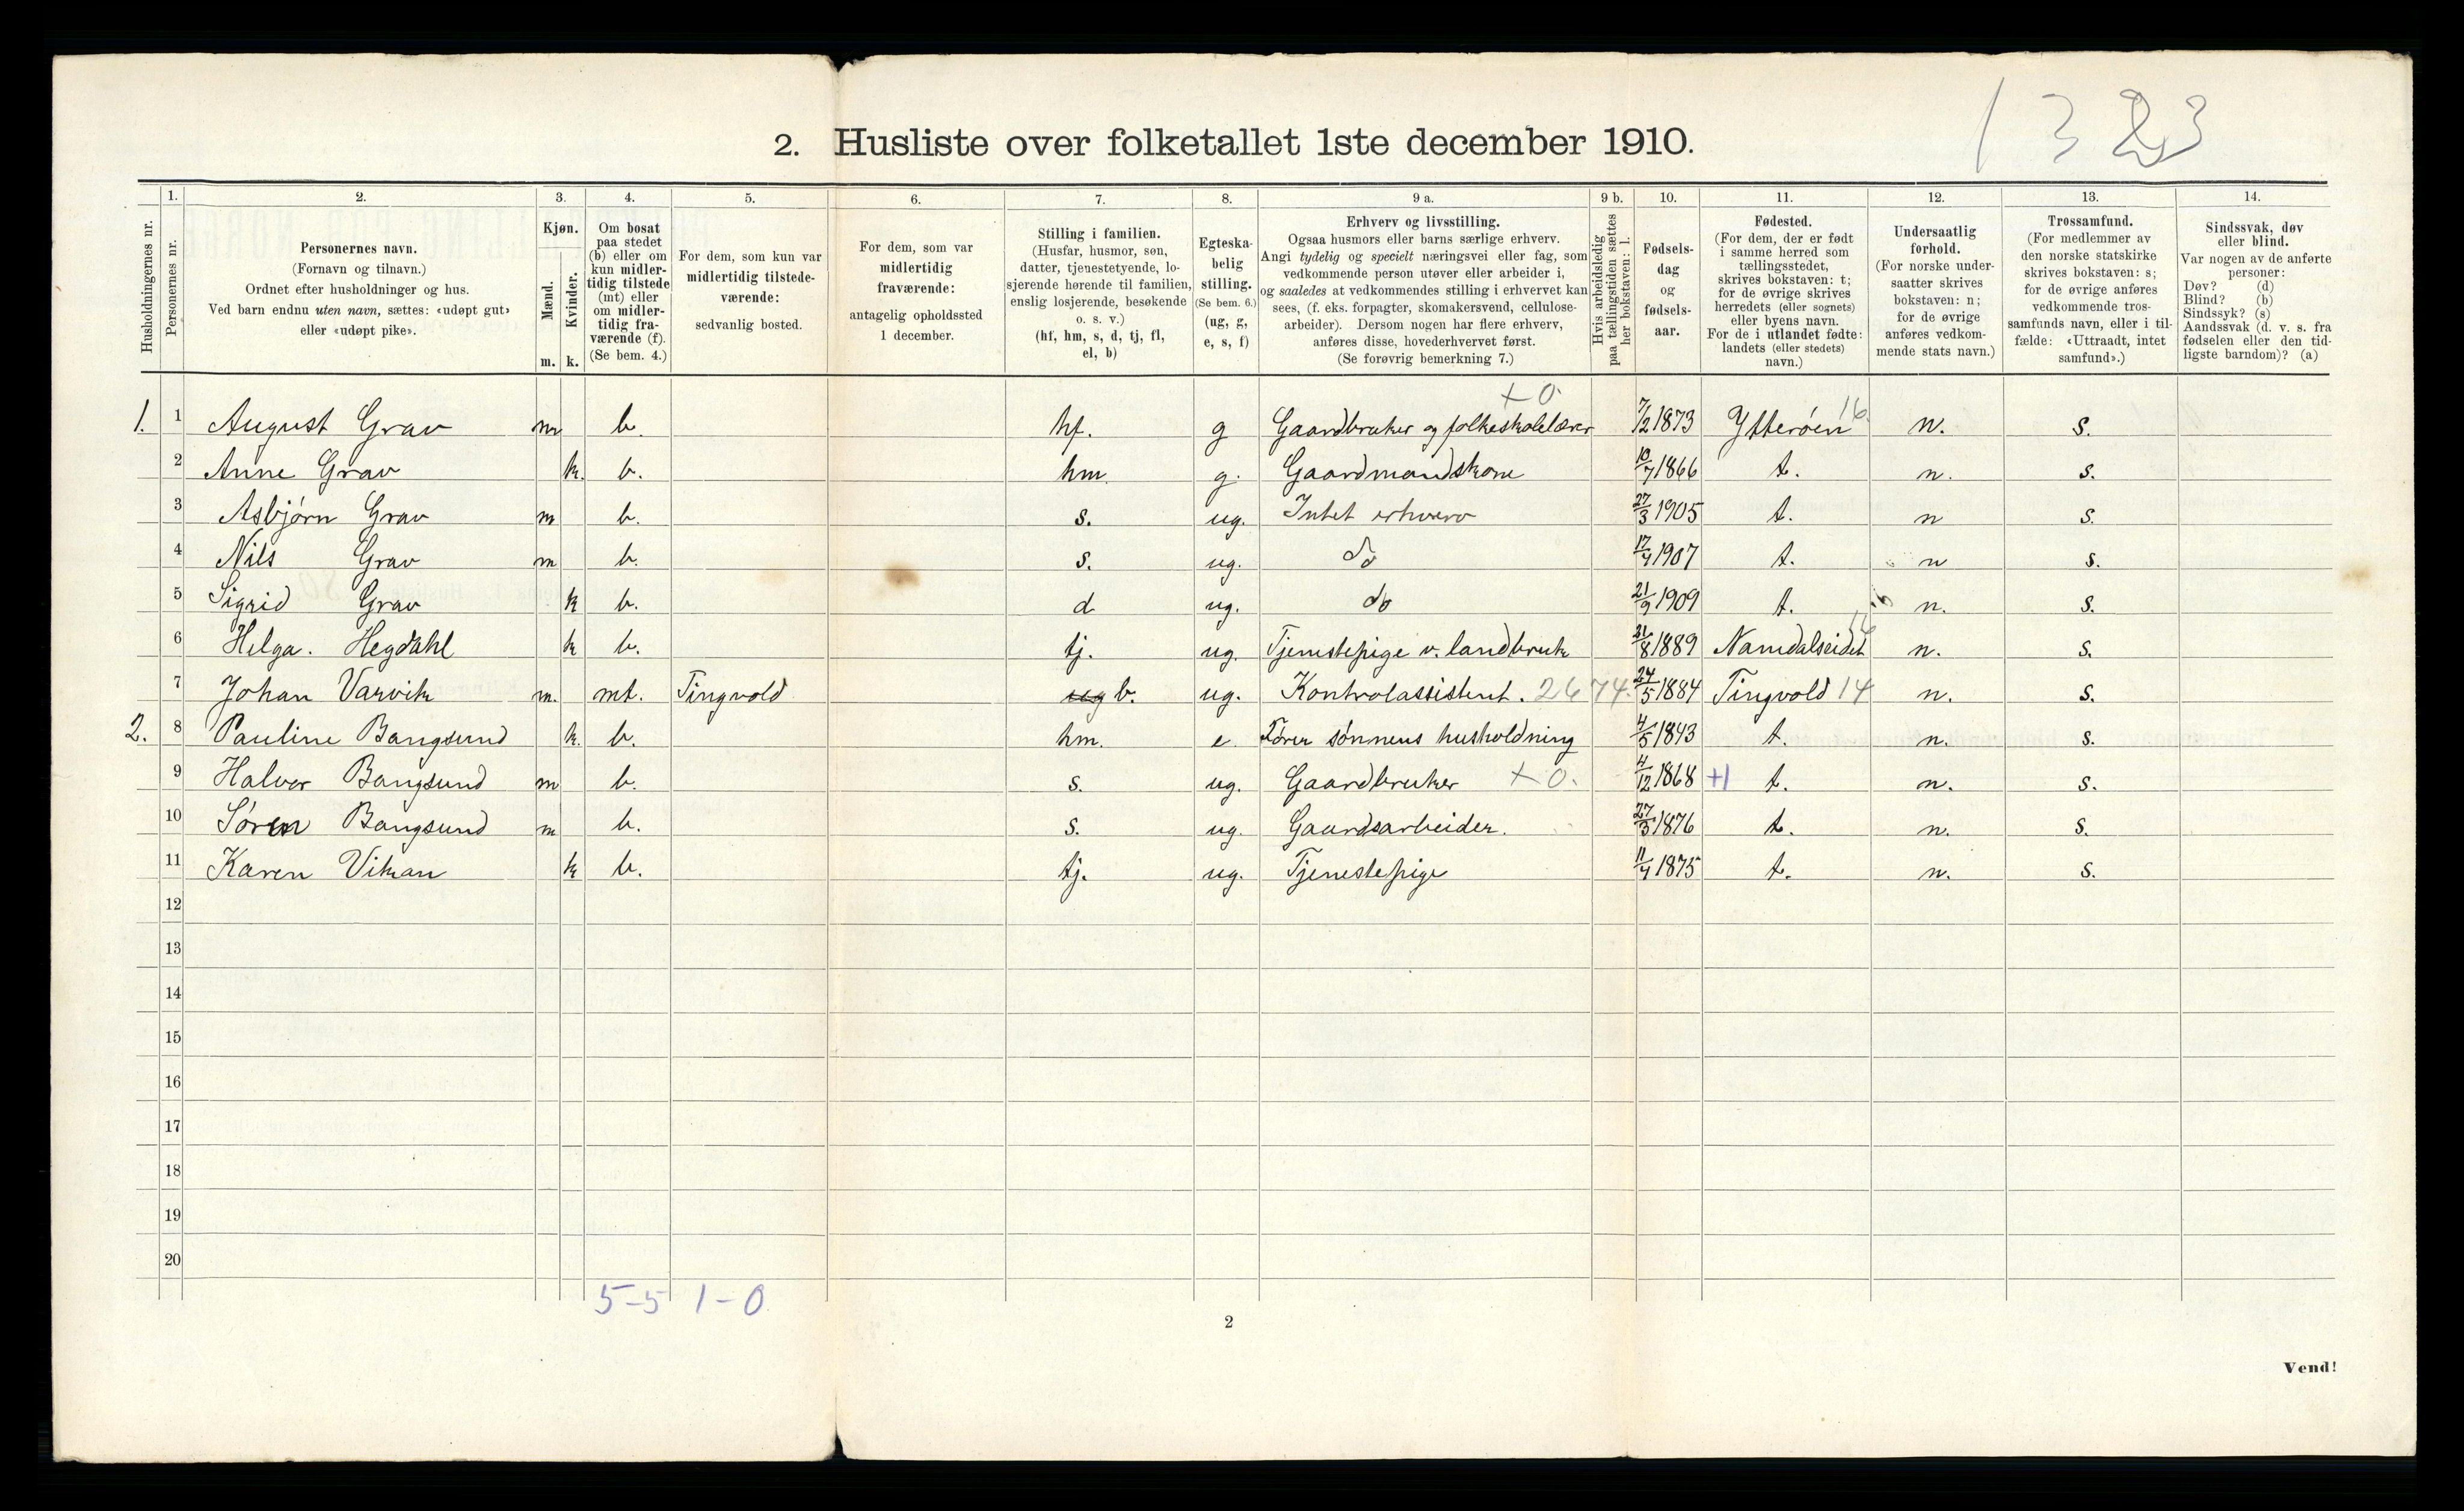 1323
2. Husliste over folketallet 1ste december 1910.
1. 2. 3. 4. 5. 6. 7. 8. 9 a. 9 b. 10. 11. 12. 13. 14.
Husholdningernes nr.
Personernes nr.
Personernes navn.
(Fornavn og tilnavn.)
Ordnet efter husholdninger og hus.
Ved barn endnu uten navn, sættes: «udøpt gut»
eller «udøpt pike».
Kjøn.
Mænd.
Kvinder.
m. k.
Om bosat
paa stedet
(b) eller om
kun midler-
tidig tilstede
(mt) eller
om midler-
tidig fra-
værende (f).
(Se bem. 4.)
For dem, som kun var
midlertidig tilstede-
værende:
sedvanlig bosted.
For dem, som var
midlertidig
fraværende:
antagelig opholdssted
1 december.
Stilling i familien.
(Husfar, husmor, søn,
datter, tjenestetyende, lo-
sjerende hørende til familien,
enslig losjerende, besøkende
o. s. v.)
(hf, hm, s, d, tj, fl,
el, b)
Egteska-
belig
stilling.
(Se bem. 6.)
(ug, g,
e, s, f)
Erhverv og livsstilling.
Ogsaa husmors eller barns særlige erhverv.
Angi tydelig og specielt næringsvei eller fag, som
vedkommende person utøver eller arbeider i,
og saaledes at vedkommendes stilling i erhvervet kan
sees, (f. eks. forpagter, skomakersvend, cellulose-
arbeider). Dersom nogen har flere erhverv,
anføres disse, hovederhvervet først.
(Se forøvrig bemerkning 7.)
Hvis arbeidsledig
paa tællingstiden sættes
her bokstaven: l.
Fødsels-
dag
og
fødsels-
aar.
Fødested.
(For dem, der er født
i samme herred som
tællingsstedet,
skrives bokstaven: t;
for de øvrige skrives
herredets (eller sognets)
eller byens navn.
For de i utlandet fødte:
landets (eller stedets)
navn.)
Undersaatlig
forhold.
(For norske under-
saatter skrives
bokstaven: n;
for de øvrige
anføres vedkom-
mende stats navn.)
Trossamfund.
(For medlemmer av
den norske statskirke
skrives bokstaven: s;
for de øvrige anføres
vedkommende tros-
samfunds navn, eller i til-
fælde: «Uttraadt, intet
samfund».)
Sindssvak, døv
eller blind.
Var nogen av de anførte
personer:
Døv? (d)
Blind? (b)
Sindssyk? (s)
Aandssvak (d. v. s. fra
fødselen eller den tid-
ligste barndom)? (a)
+ 0.
1. 1 August Grav m b. hf. g Gaardbruker og folkeskolelærer 7/2 1873 Ytterøen 16. n. s.
2 Anne Grav k. b. hm. g. Gaardmandskone 10/7 1866 t. n. s.
3 Asbjørn Grav m b. s. ug. Intet erhverv 27/3 1905 t. n s.
4 Nils Grav m b. s. ug. do 17/4 1907 t. n s.
5 Sigrid Grav k b. d ug. do 21/9 1909 t. n. s.
6 Helga. Hegdahl k b. tj. ug. Tjenestepige v. landbruk 31/8 1889 Namdalseidet n. s.
7 Johan Varvik m. mt. Tingvold ug b. ug. Kontrolassistent. 2674. 24/5 1884 Tingvold 14 n. s.
2. 8 Pauline Bangsund k. b. hm. e. Fører sønnens husholdning 4/5 1843 t. n. s.
9 Halvor Bangsund m b. s. ug. Gaardbruker + 0. 4/12 1868 +1 t. n. s.
10 Søren Bangsund m b. s. ug. Gaardsarbeider. 27/3 1876 t. n. s.
11 Karen Vikan k b. tj. ug. Tjenestepige 11/4 1875 t. n. s.
12
13
14
15
16
17
18
19
20
5-5 1-0
2
Vend!